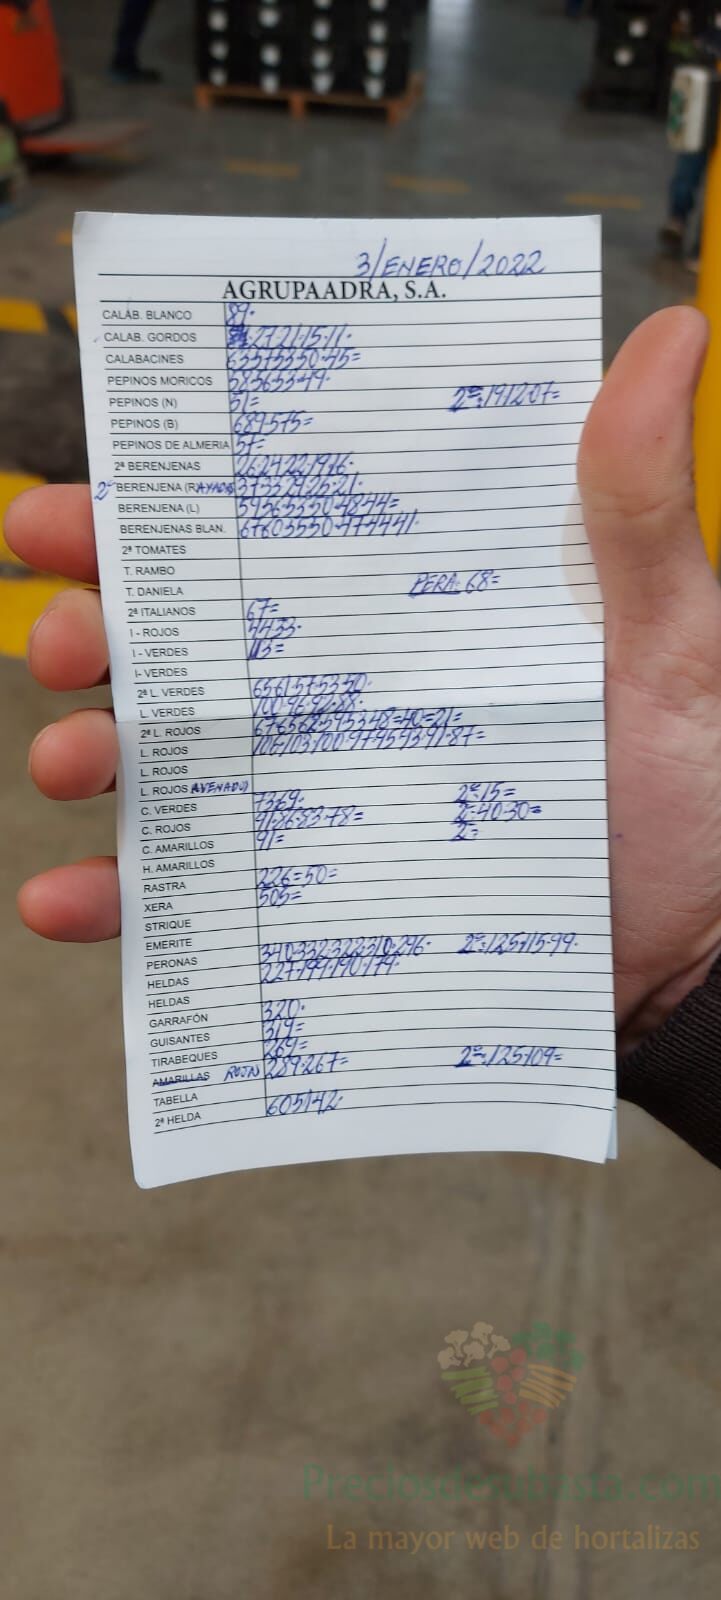 3/ENERO/2022
AGRUPAADRA, S.A.
CALAB. BLANCO 89.
CALAB. GORDOS 27.21.15.11.
CALABACINES 63575350.45=
PEPINOS MORICOS 58565349.
PEPINOS (N) 51= 2ª:191207=
PEPINOS (B) 689.575=
PEPINOS DE ALMERIA 57=
2ª BERENJENAS 2624221916.
2ª BERENJENA (RAYADAS) 3733292521.
BERENJENA (L) 595653504844=
BERENJENAS BLAN. 67605550474441.
2ª TOMATES
T. RAMBO
T. DANIELA PERA: 68=
2ª ITALIANOS 67=
I - ROJOS 4433.
I - VERDES 113=
I- VERDES
2ª L. VERDES 6561575350.
L. VERDES 100.96.92.88.
2ª L. ROJOS 676562595348=40=21=
L. ROJOS 106103.100.97.9593.91.87=
L. ROJOS
L. ROJOS (AVENADO)
C. VERDES 7369. 2ª:15=
C. ROJOS 91.86.83.78= 2ª:40.30=
C. AMARILLOS 91= 2ª=
H. AMARILLOS
RASTRA 226=50=
XERA 505=
STRIQUE
EMERITE
PERONAS 340332.322.310.296. 2ª:125.115.99.
HELDAS 227.199.190.179.
HELDAS
GARRAFÓN 320.
GUISANTES 319=
TIRABEQUES 269=
AMARILLAS ROJA 289.267= 2ª:125.109=
TABELLA
2ª HELDA 605142.
Preciosdesubasta.com
La mayor web de hortalizas